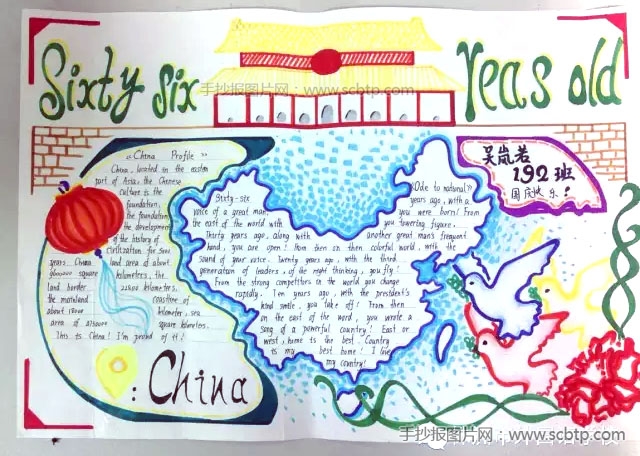 Sixty six Yeas old
手抄报图片网 www.scbtp.com
《China Profile》
China, located in the eastern
part of Asia. the Chinese
culture is the
foundation,
the foundation
the development
of the history of
civilization for
years. China land area of about
9600000 square kilometers, the
land border 22800 kilometers,
the mainland coastline of
about 18000 kilometer, sea
area of square kilometers.
This is China! I'm proud of it!
: China
Sixty-six
voice of a great man,
the east of the world with
Thirty years ago, along with
hand, you are open! From then on
sound of your voice. Twenty years ago, with the third
generation of leaders, of the night thinking, you fly!
From the strong competitors in the world you change
rapidly. Ten years ago, with the president's
kind smile, you take off! From then
in the east of the word, you wrote a
song of a powerful country! East or
west, home is the best. Country
is my best home! I love
my country!
《Ode to national》
years ago, with a
you were born! From
you towering figure.
another great man's frequent
colorful world, with the
吴岚若
192班
国庆快乐!
手抄报图片网 www.scbtp.com